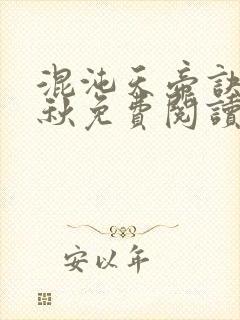 混沌天帝訣
秋免費閱讀
安以年